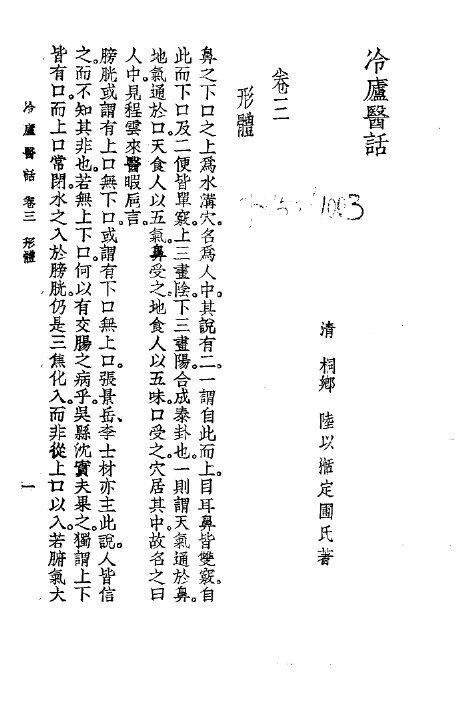 冷廬醫話
清 桐鄉 陸以湉定圃氏著
卷三
1003
形體
鼻之下口之上爲水溝穴。名爲人中。其說有二。一謂自此而上。目耳鼻皆雙竅。自
此而下。口及二便皆單竅。上三畫陰。下三畫陽。合成泰卦也。一則謂天氣通於鼻。
地氣通於口。天食人以五氣。鼻受之。地食人以五味。口受之。穴居其中。故名之曰
人中。見程雲來醫暇巵言。
膀胱或謂有上口無下口。或謂有下口無上口。張景岳、李士材亦主此說。人皆信
之。而不知其非也。若無上下口。何以有交腸之病乎。吳縣沈實夫果之。獨謂上下
皆有口。而上口常閉。水之入於膀胱。仍是三焦化入。而非從上口以入。若腑氣大
冷廬醫話 卷三 形體
一